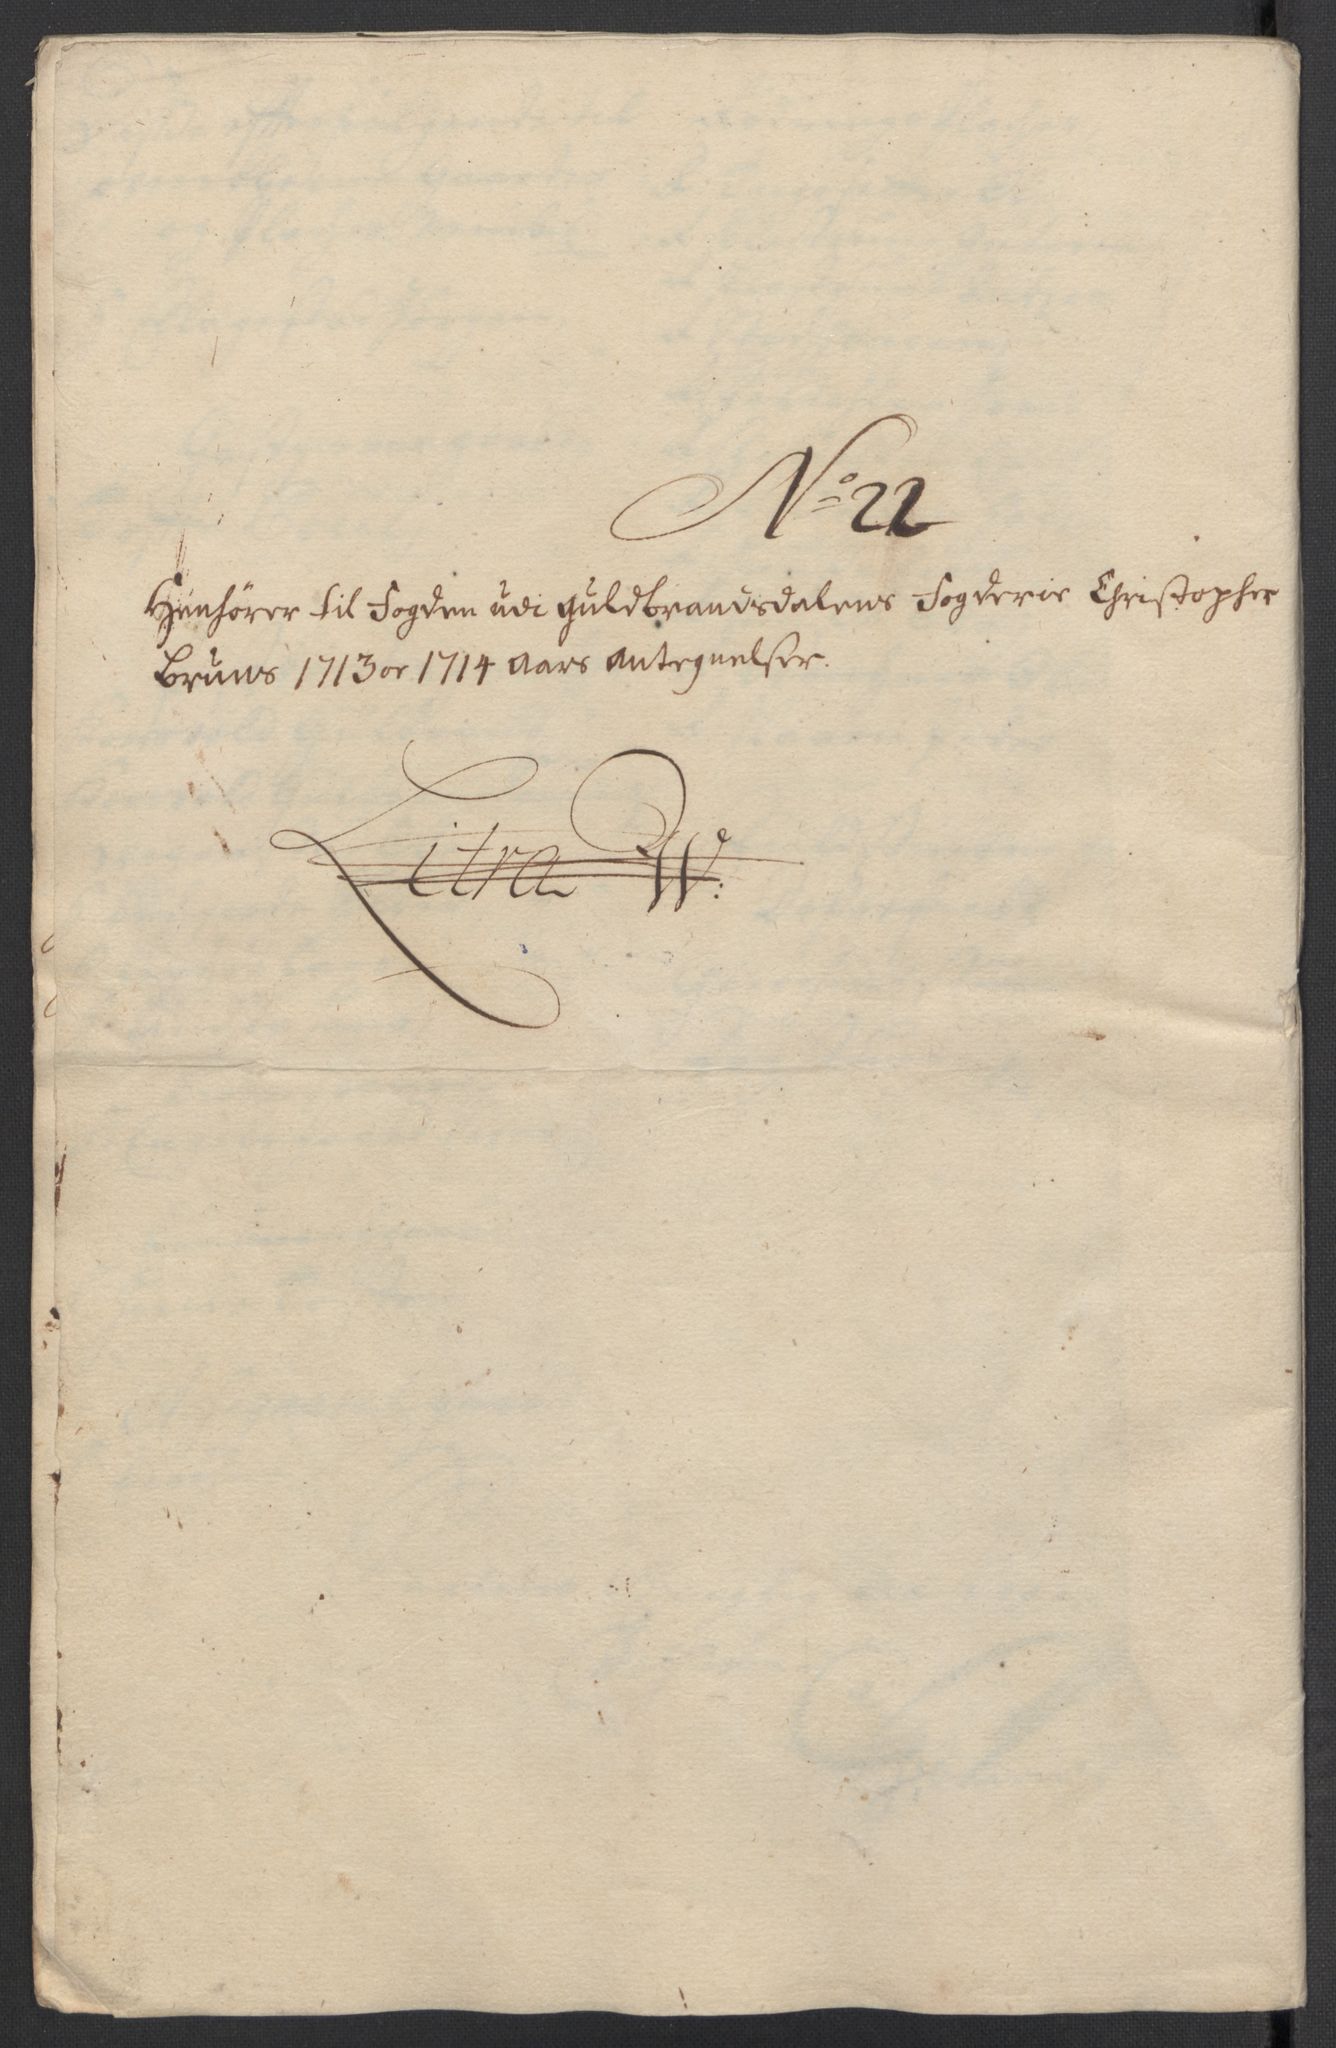 No 22
Henhörer til Fogden udi Guldbrandsdalens Fogderie Christopher
Bruns 1713 oc 1714 Aars Antegnelser.
Litra W: